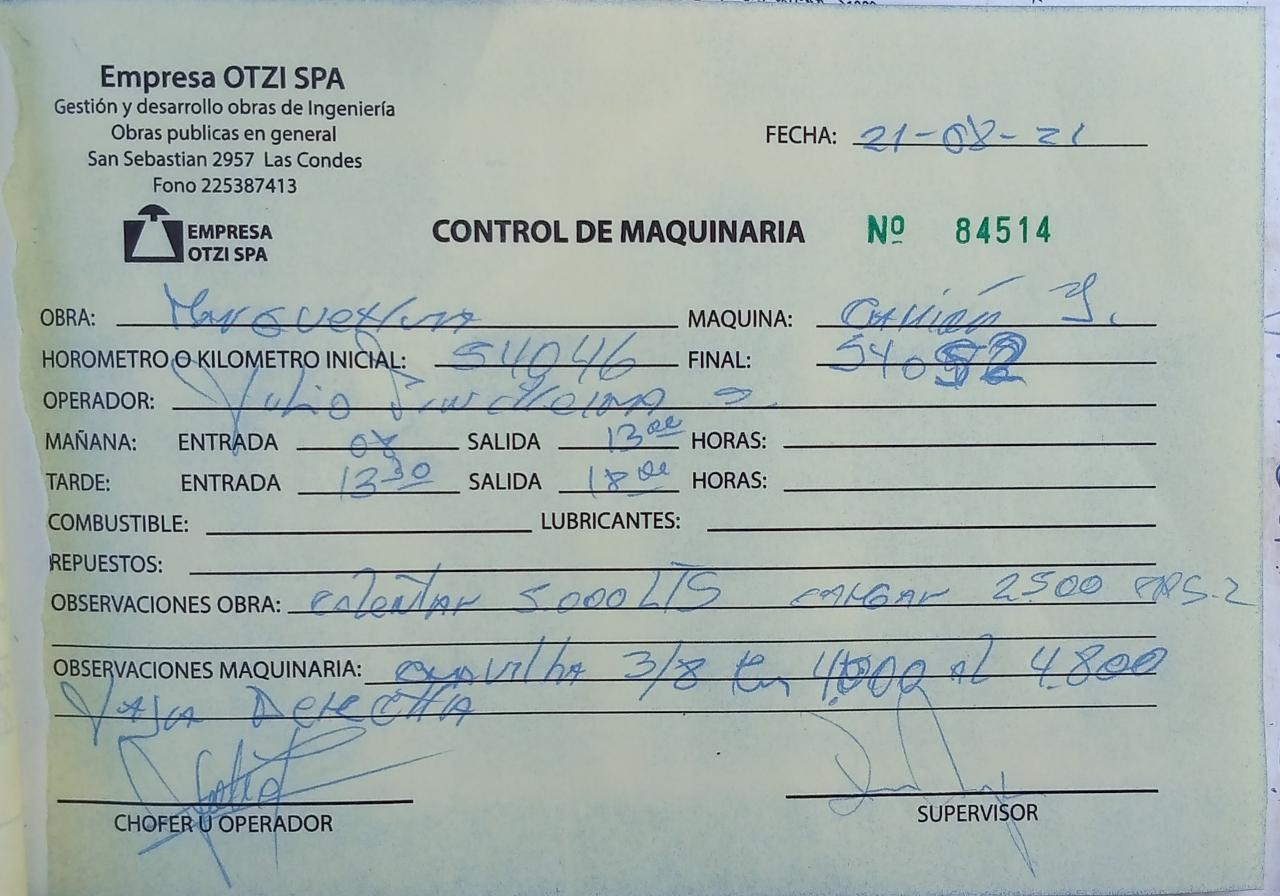 Empresa OTZI SPA
Gestión y desarrollo obras de Ingeniería
Obras publicas en general
San Sebastian 2957 Las Condes
Fono 225387413
FECHA: 21-08-21
EMPRESA
OTZI SPA
CONTROL DE MAQUINARIA Nº 84514
OBRA: MAQUINA: Camión I.
HOROMETRO O KILOMETRO INICIAL: 54046 FINAL: 54052
OPERADOR: Julio
MAÑANA: ENTRADA 08 SALIDA 13 00 HORAS:
TARDE: ENTRADA 13 30 SALIDA 18 00 HORAS:
COMBUSTIBLE: LUBRICANTES:
REPUESTOS:
OBSERVACIONES OBRA: calentar 5.000 LTS cargar 2.500
OBSERVACIONES MAQUINARIA: gravilla 3/8 en 4.000 al 4.800
Faja Derecha
CHOFER U OPERADOR
SUPERVISOR